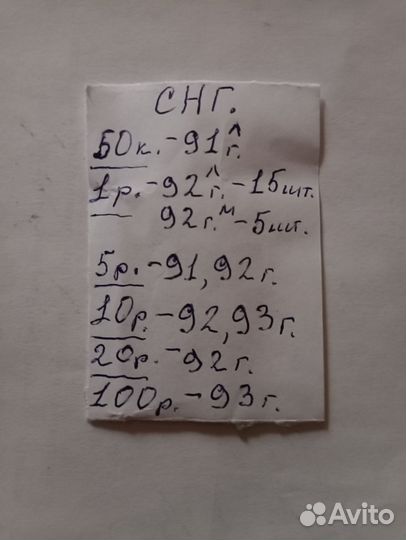 СНГ.
50к. - 91г. л
1р. - 92г. л - 15шт.
92г. м - 5шт.
5р. - 91, 92г.
10р. - 92, 93г.
20р. - 92г.
100р. - 93г.
Avito